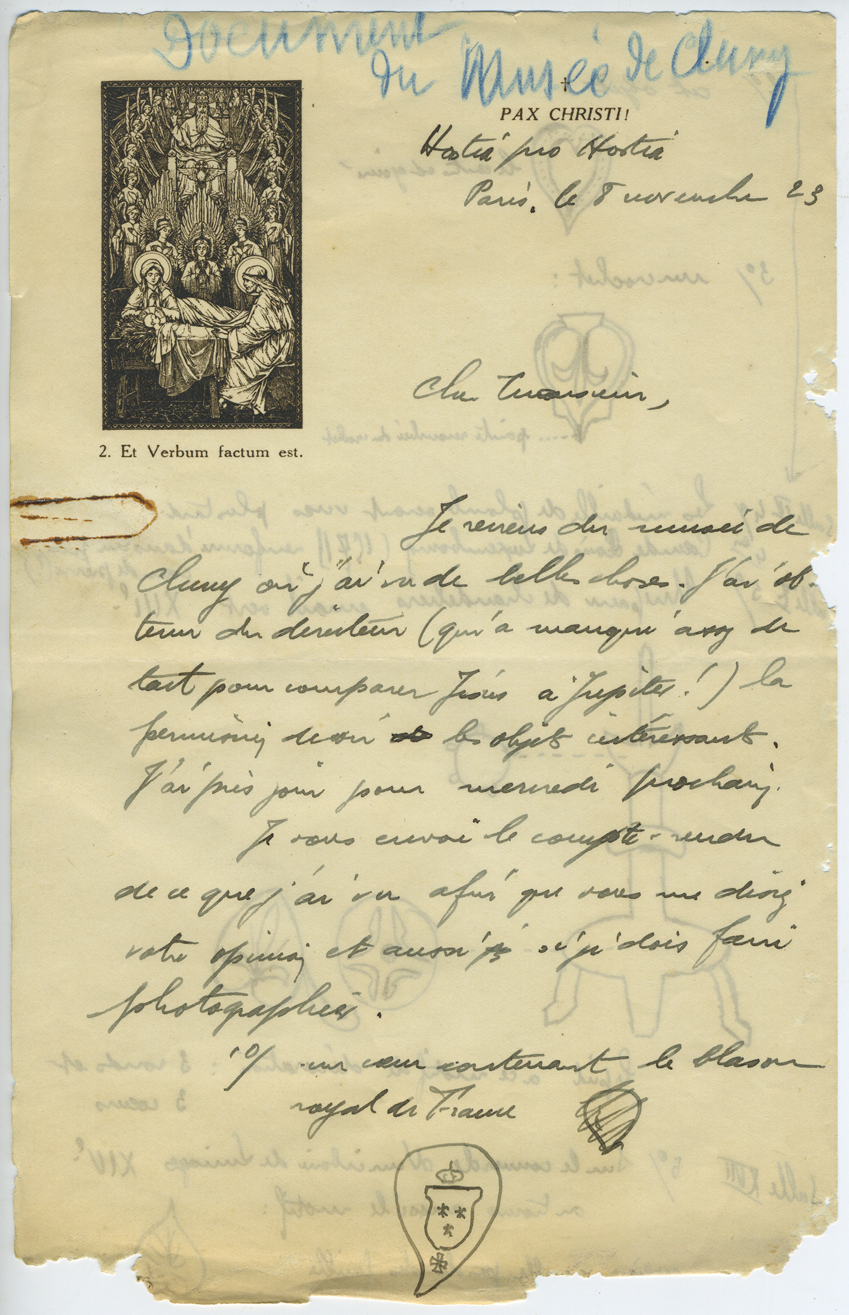 Document
du Musée de Cluny
PAX CHRISTI!
Hostia pro Hostia
Paris, le 8 novembre 23
2. Et Verbum factum est.
Cher Monsieur,
Je reviens du musée de
Cluny où j'ai vu de belles choses. J'ai ob-
tenu du directeur (qui a manqué assez de
tact pour comparer Jésus à Jupiter!) la
permission de voir les objets intéressants.
J'ai pris jour pour mercredi prochain.
Je vous envoie le compte-rendu
de ce que j'ai vu afin que vous me disiez
votre opinion et aussi si je dois faire
photographier.
1o/ un cœur contenant le blason
royal de France